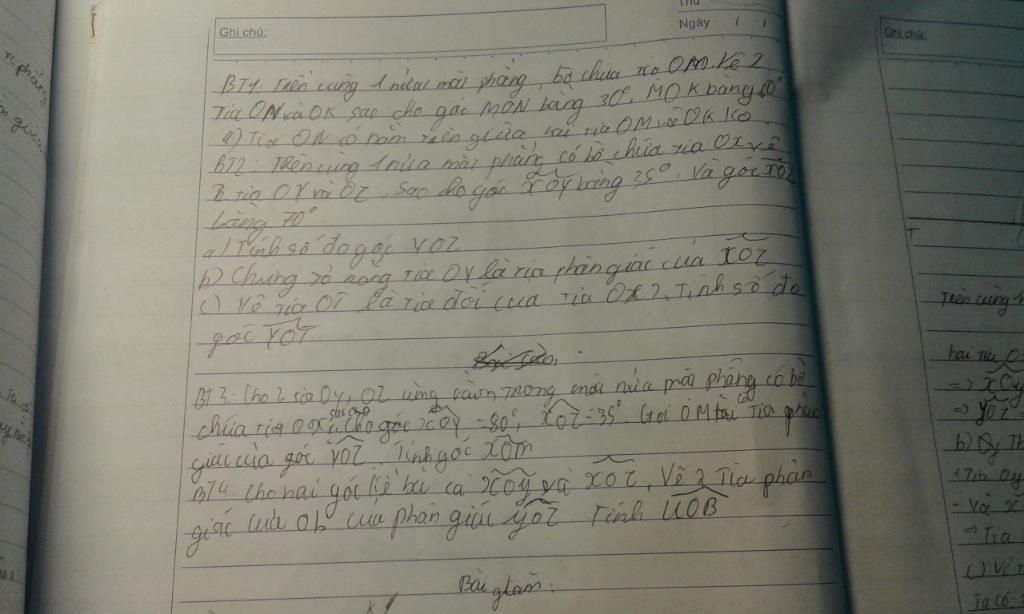 Thứ
Ngày / /
Ghi chú:
Ghi chú:
BT1. Trên cùng 1 nửa mặt phẳng, bờ chứa tia OM. Kẻ 2
Tia ON và OK sao cho góc MON bằng 30°, MOK bằng 60°
a) Tia ON có nằm trên giữa hai tia OM và OK ko
BT2: Trên cùng 1 nửa mặt phẳng có bờ chứa tia Ox vẽ
2 tia OY và OZ. Sao cho góc XOY bằng 35°. Và góc XOZ
bằng 70°
a) Tính số đo góc YOZ
b) Chứng tỏ rằng tia OY là tia phân giác của XOZ
c) Vẽ tia OT là tia đối của tia Ox?. Tính số đo
góc YOT
BT3: Cho 2 tia Oy, OZ cùng nằm trong một nửa mặt phẳng có bờ
chứa tia Ox sao cho góc xOy = 80°, XOZ = 35°. Gọi OM là Tia phân
giác của góc YOZ. Tính góc XOm
BT4: Cho hai góc kề bù là xOy và XOZ, Vẽ 2 Tia phân
giác của Ob của phân giác yOZ Tính UOB
Bài giải:
T
Trên cùng
hai tia O
=> xOy
=> YOZ
b)
+ Tia Oy
- Và x
=> Tia
c) Vẽ
Ta có